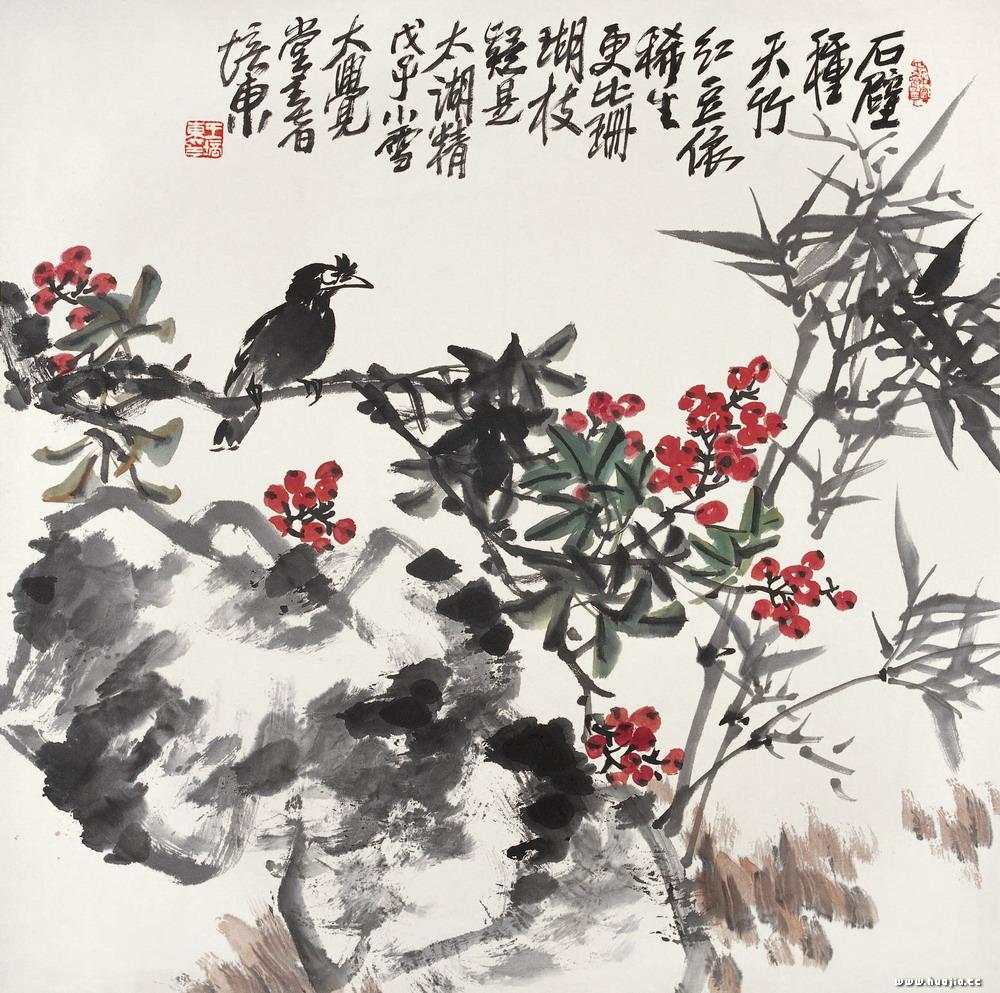 石壁
種
天竹
红豆依
稀生
更比珊
瑚枝
疑是
太湖精
戊子小雪
大覺
堂
培東
王培
東
www.huajia.cc